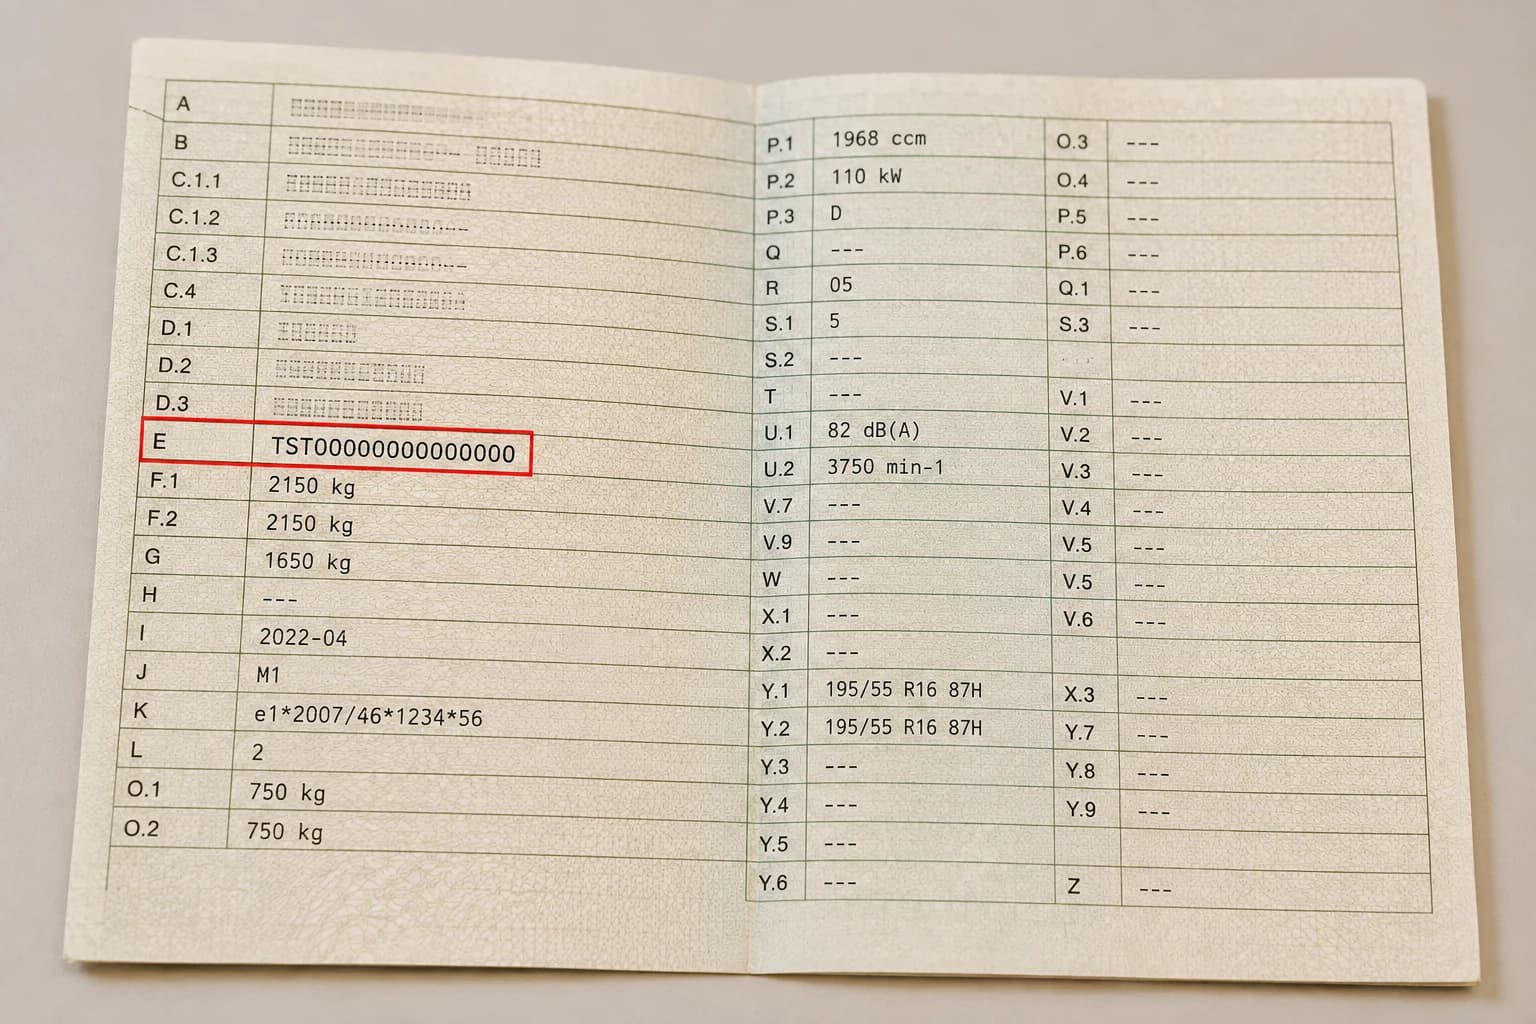 A
B
C.1.1
C.1.2
C.1.3
C.4
D.1
D.2
D.3
E TST00000000000000
F.1 2150 kg
F.2 2150 kg
G 1650 kg
H ---
I 2022-04
J M1
K e1*2007/46*1234*56
L 2
O.1 750 kg
O.2 750 kg
P.1 1968 ccm O.3 ---
P.2 110 kW O.4 ---
P.3 D P.5 ---
Q --- P.6 ---
R 05 Q.1 ---
S.1 5 S.3 ---
S.2 ---
T --- V.1 ---
U.1 82 dB(A) V.2 ---
U.2 3750 min-1 V.3 ---
V.7 --- V.4 ---
V.9 --- V.5 ---
W --- V.5 ---
X.1 --- V.6 ---
X.2 ---
Y.1 195/55 R16 87H X.3 ---
Y.2 195/55 R16 87H Y.7 ---
Y.3 --- Y.8 ---
Y.4 --- Y.9 ---
Y.5 ---
Y.6 --- Z ---